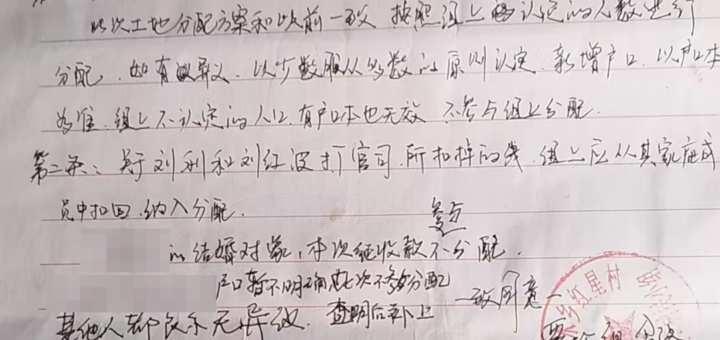 此次土地分配方案和以前一致 按照组上的认定的人数进行
分配,如有异议,以少数服从多数的原则认定,新增户口,以户口本
为准,组上不认定的人口,有户口本也无效 不参与组上分配.
第二条:关于刘利和刘红波打官司,所扣掉的钱,组上应从其家庭成
员中扣回,纳入分配.
参与
的结婚对象,本次征收款不分配.
户口暂不明确此次不参与分配 一致同意
其他人都表示无异议 查明后补上
红星村